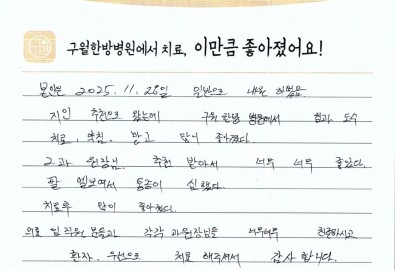 구월한방병원에서 치료, 이만큼 좋아졌어요!
본인은 2025. 11. 28일 일반으로 내원 하였음
지인 추천으로 왔는데 구월 한방 병원에서 도수
치료, 약침, 받고 많이 좋아졌다.
2과 원장님, 추천 받아서 너무 너무 좋았다.
팔 엘보에서 통증이 심했다.
치료후 많이 좋아졌다.
의료 임직원 분들과 각각 과원장님들 너무너무 친절하시고
환자, 우선으로 치료 해주셔서 감사 합니다.